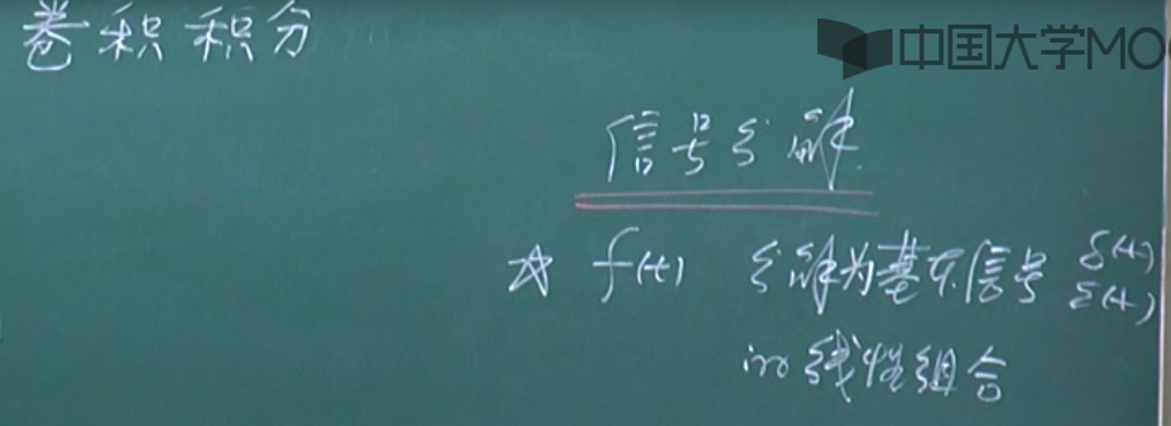 卷积积分
中国大学MOO
信号分解
☆ f(t) 分解为基本信号 δ(t) ε(t)
的线性组合